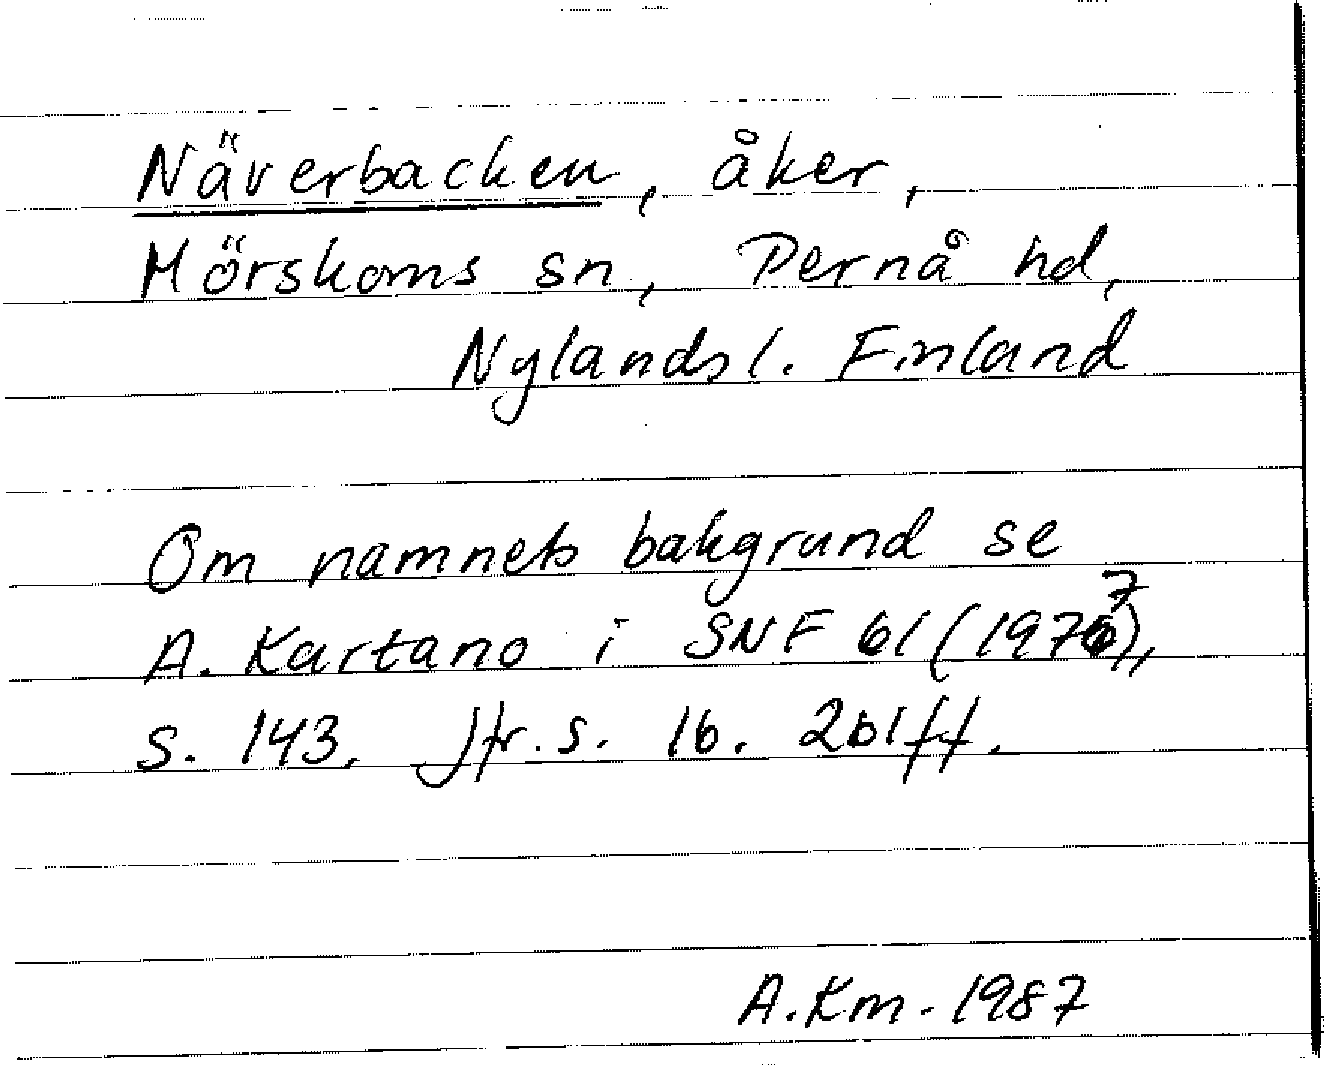 Näverbacken, åker,
Mörskoms sn, Pernå hd,
Nylandsl. Finland
Om namnets bakgrund se
A. Kartano i SNF 61 (1977),
s. 143. Jfr. s. 16. 261ff.
A.Km. 1987